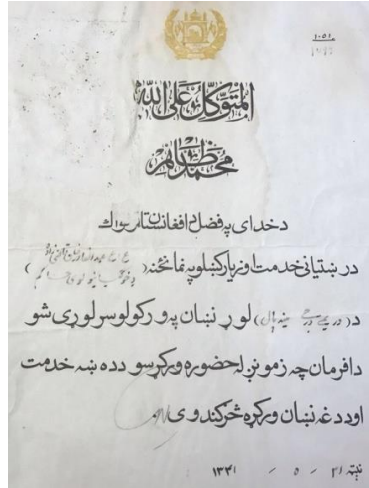 ۱۰۵۱
المتوکل علی الله
محمد ظاهر
د خدای په فضل د افغانستان ټولواک
د رښتیانی خدمت او زیار کښلو په نمانځنه ( )
د (دریمې درجې مینه پال) لوړ نښان په ورکولو سر لوړی شو
دا فرمان چه زمونږ له حضوره ورکړ سو د ده ښه خدمت
او د دغه نښان ورکړه څرګندوی
نېټه ۲۱ - ۵ - ۱۳۴۱